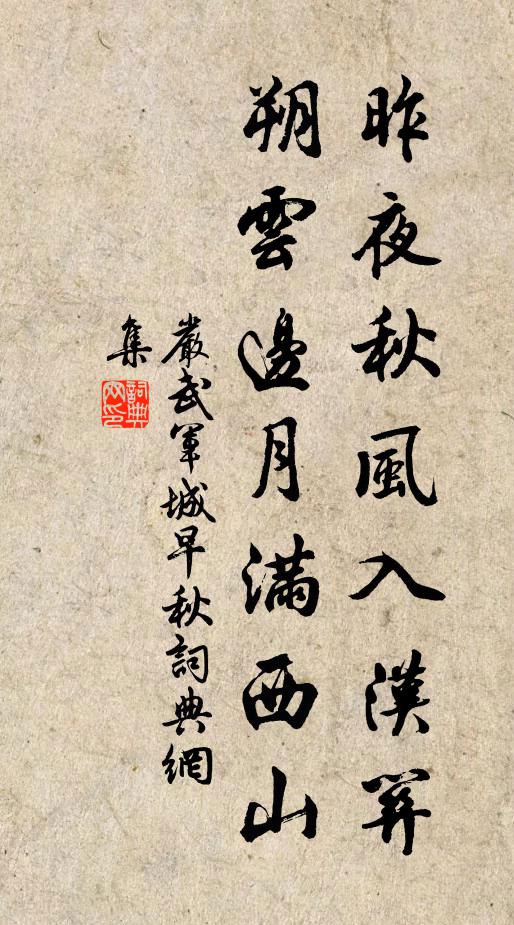 昨夜秋風入漢關
朔雲邊月滿西山
嚴武軍城早秋詞典網
集
詞典
网印